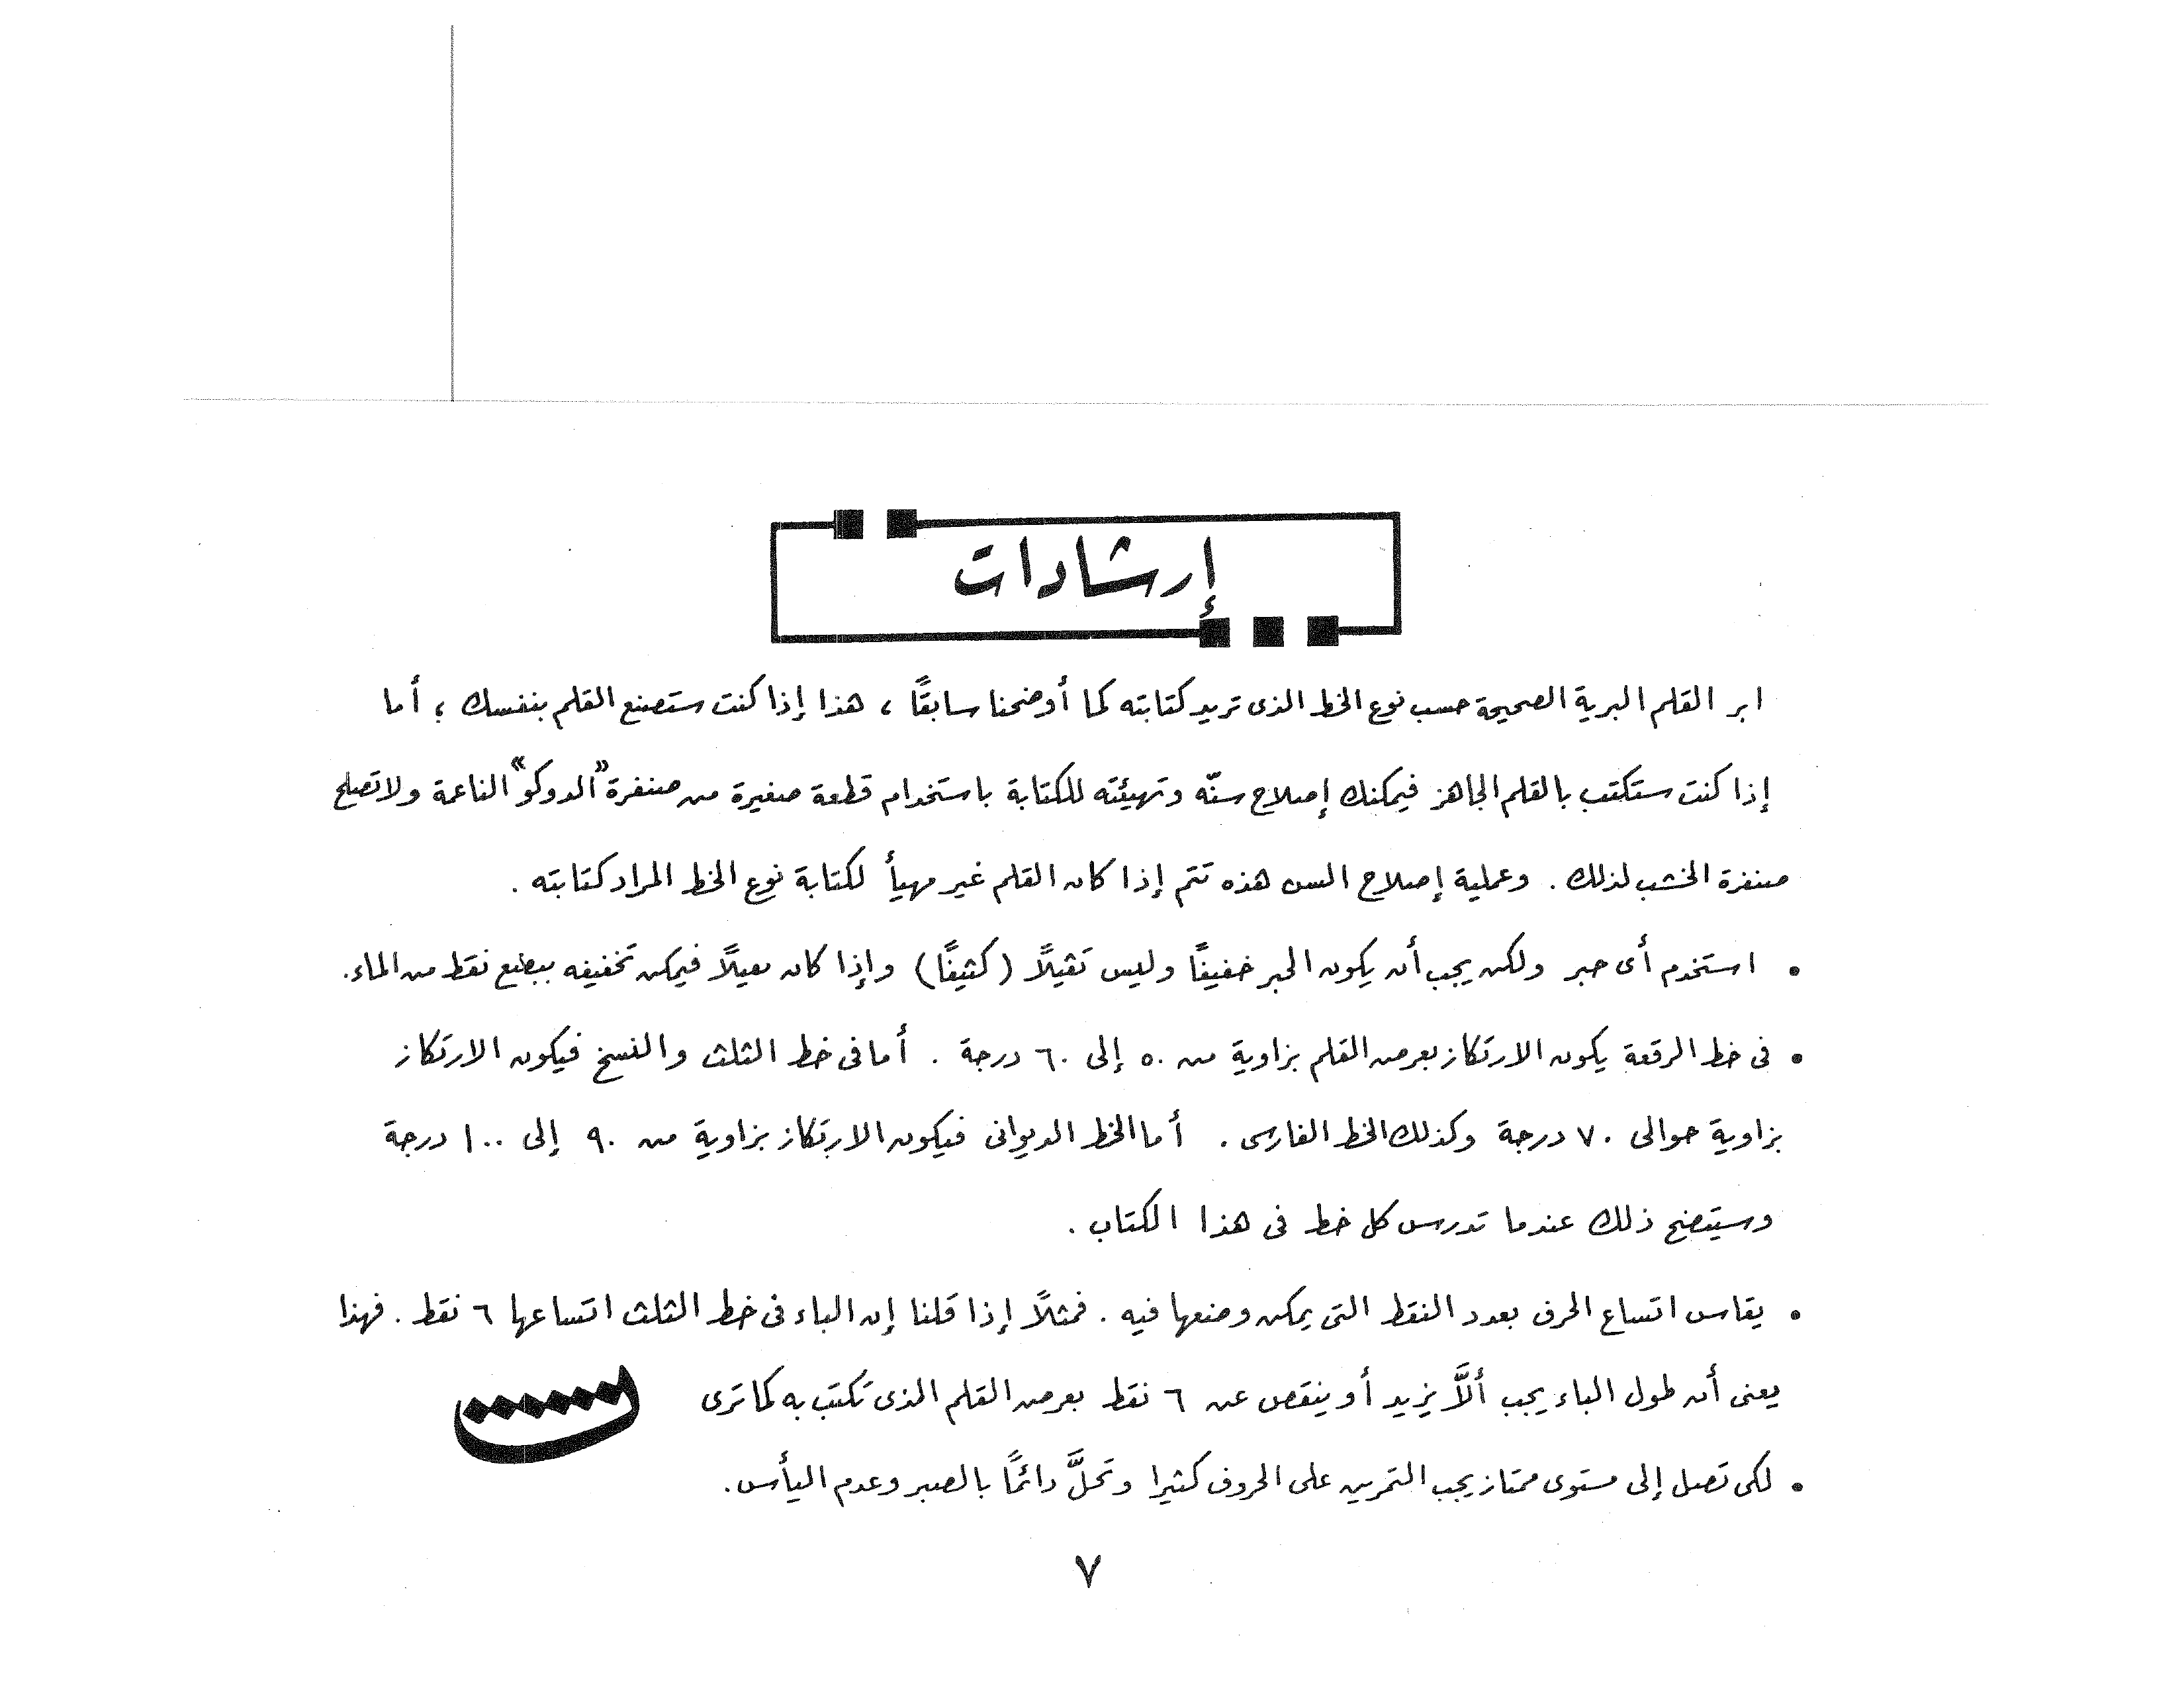 إرشادات
ابر القلم البرية الصحيحة حسب نوع الخط الذى تريد كتابته كما أوضحنا سابقًا ، هذا إذا كنت ستصنع القلم بنفسك ؛ أما
إذا كنت ستكتب بالقلم الجاهز فيمكنك إصلاح سنّه وتهيئته للكتابة باستخدام قطعة صغيرة من صنفرة "الدوكو" الناعمة ولا تصلح
صنفرة الخشب لذلك . وعملية إصلاح السن هذه تتم إذا كان القلم غير مهيأ لكتابة نوع الخط المراد كتابته .
• استخدم أى حبر ولكن يجب أن يكون الحبر خفيفًا وليس ثقيلًا (كثيفًا) وإذا كان ثقيلًا فيمكن تخفيفه ببضع نقط من الماء.
• فى خط الرقعة يكون الارتكاز بعرض القلم بزاوية من ٥٠ إلى ٦٠ درجة . أما فى خط الثلث والنسخ فيكون الارتكاز
بزاوية حوالى ٧٠ درجة وكذلك الخط الفارسى . أما الخط الديوانى فيكون الارتكاز بزاوية من ٩٠ إلى ١٠٠ درجة
وسيتضح ذلك عندما تدرس كل خط فى هذا الكتاب .
• يقاس اتساع الحرف بعدد النقط التى يمكن وضعها فيه . فمثلًا إذا قلنا إن الباء فى خط الثلث اتساعها ٦ نقط . فهذا
يعنى أن طول الباء يجب ألَّا يزيد أو ينقص عن ٦ نقط بعرض القلم الذى تكتب به كما ترى
• لكى تصل إلى مستوى ممتاز يجب التمرين على الحروف كثيرا وتحلَّ دائمًا بالصبر وعدم اليأس.
٧